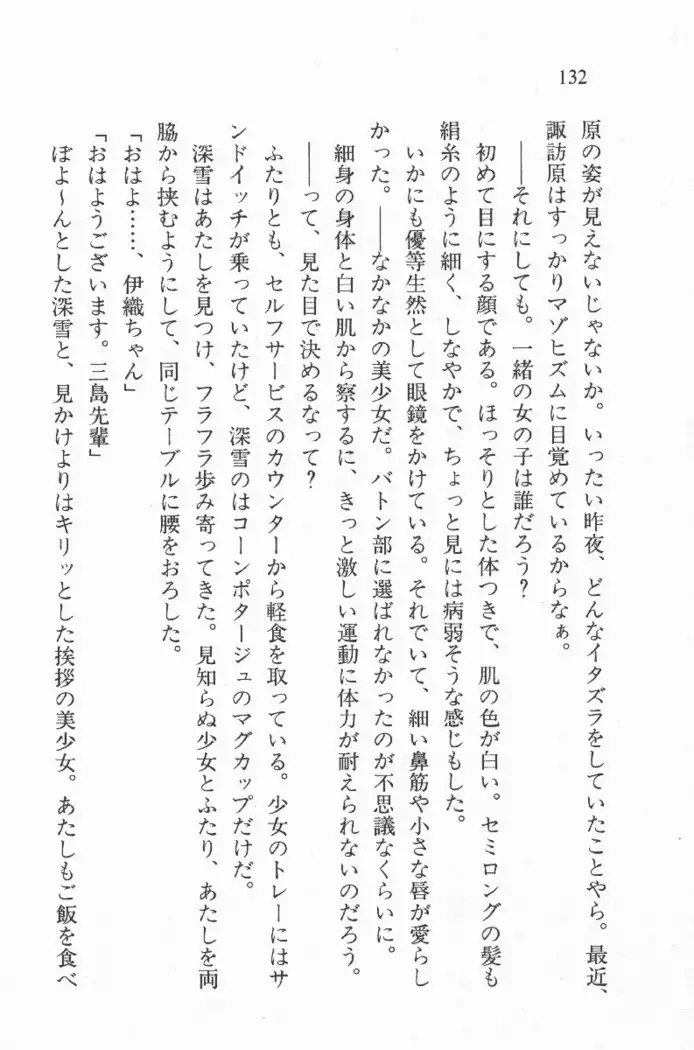 132
原の姿が見えないじゃないか。いったい昨夜、どんなイタズラをしていたことやら。最近、
諏訪原はすっかりマゾヒズムに目覚めているからなぁ。
――それにしても。一緒の女の子は誰だろう?
初めて目にする顔である。ほっそりとした体つきで、肌の色が白い。セミロングの髪も
絹糸のように細く、しなやかで、ちょっと見には病弱そうな感じもした。
いかにも優等生然として眼鏡をかけている。それでいて、細い鼻筋や小さな唇が愛らし
かった。――なかなかの美少女だ。バトン部に選ばれなかったのが不思議なくらいに。
細身の身体と白い肌から察するに、きっと激しい運動に体力が耐えられないのだろう。
――って、見た目で決めるなって?
ふたりとも、セルフサービスのカウンターから軽食を取っている。少女のトレーにはサ
ンドイッチが乗っていたけど、深雪のはコーンポタージュのマグカップだけだ。
深雪はあたしを見つけ、フラフラ歩み寄ってきた。見知らぬ少女とふたり、あたしを両
脇から挟むようにして、同じテーブルに腰をおろした。
「おはよ……、伊織ちゃん」
「おはようございます。三島先輩」
ぼよ〜んとした深雪と、見かけよりはキリッとした挨拶の美少女。あたしもご飯を食べ